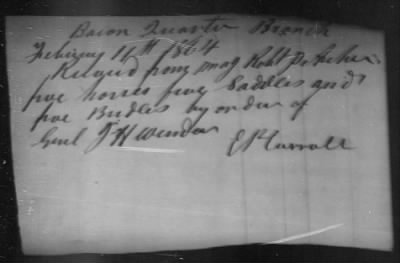 Bacon Quarter Branch
Februay 11th 1864
Recievd from Mag Robt P Archer
five horses five Saddles and
five Bridles by order of
Genl J H Winder
E P Carroll